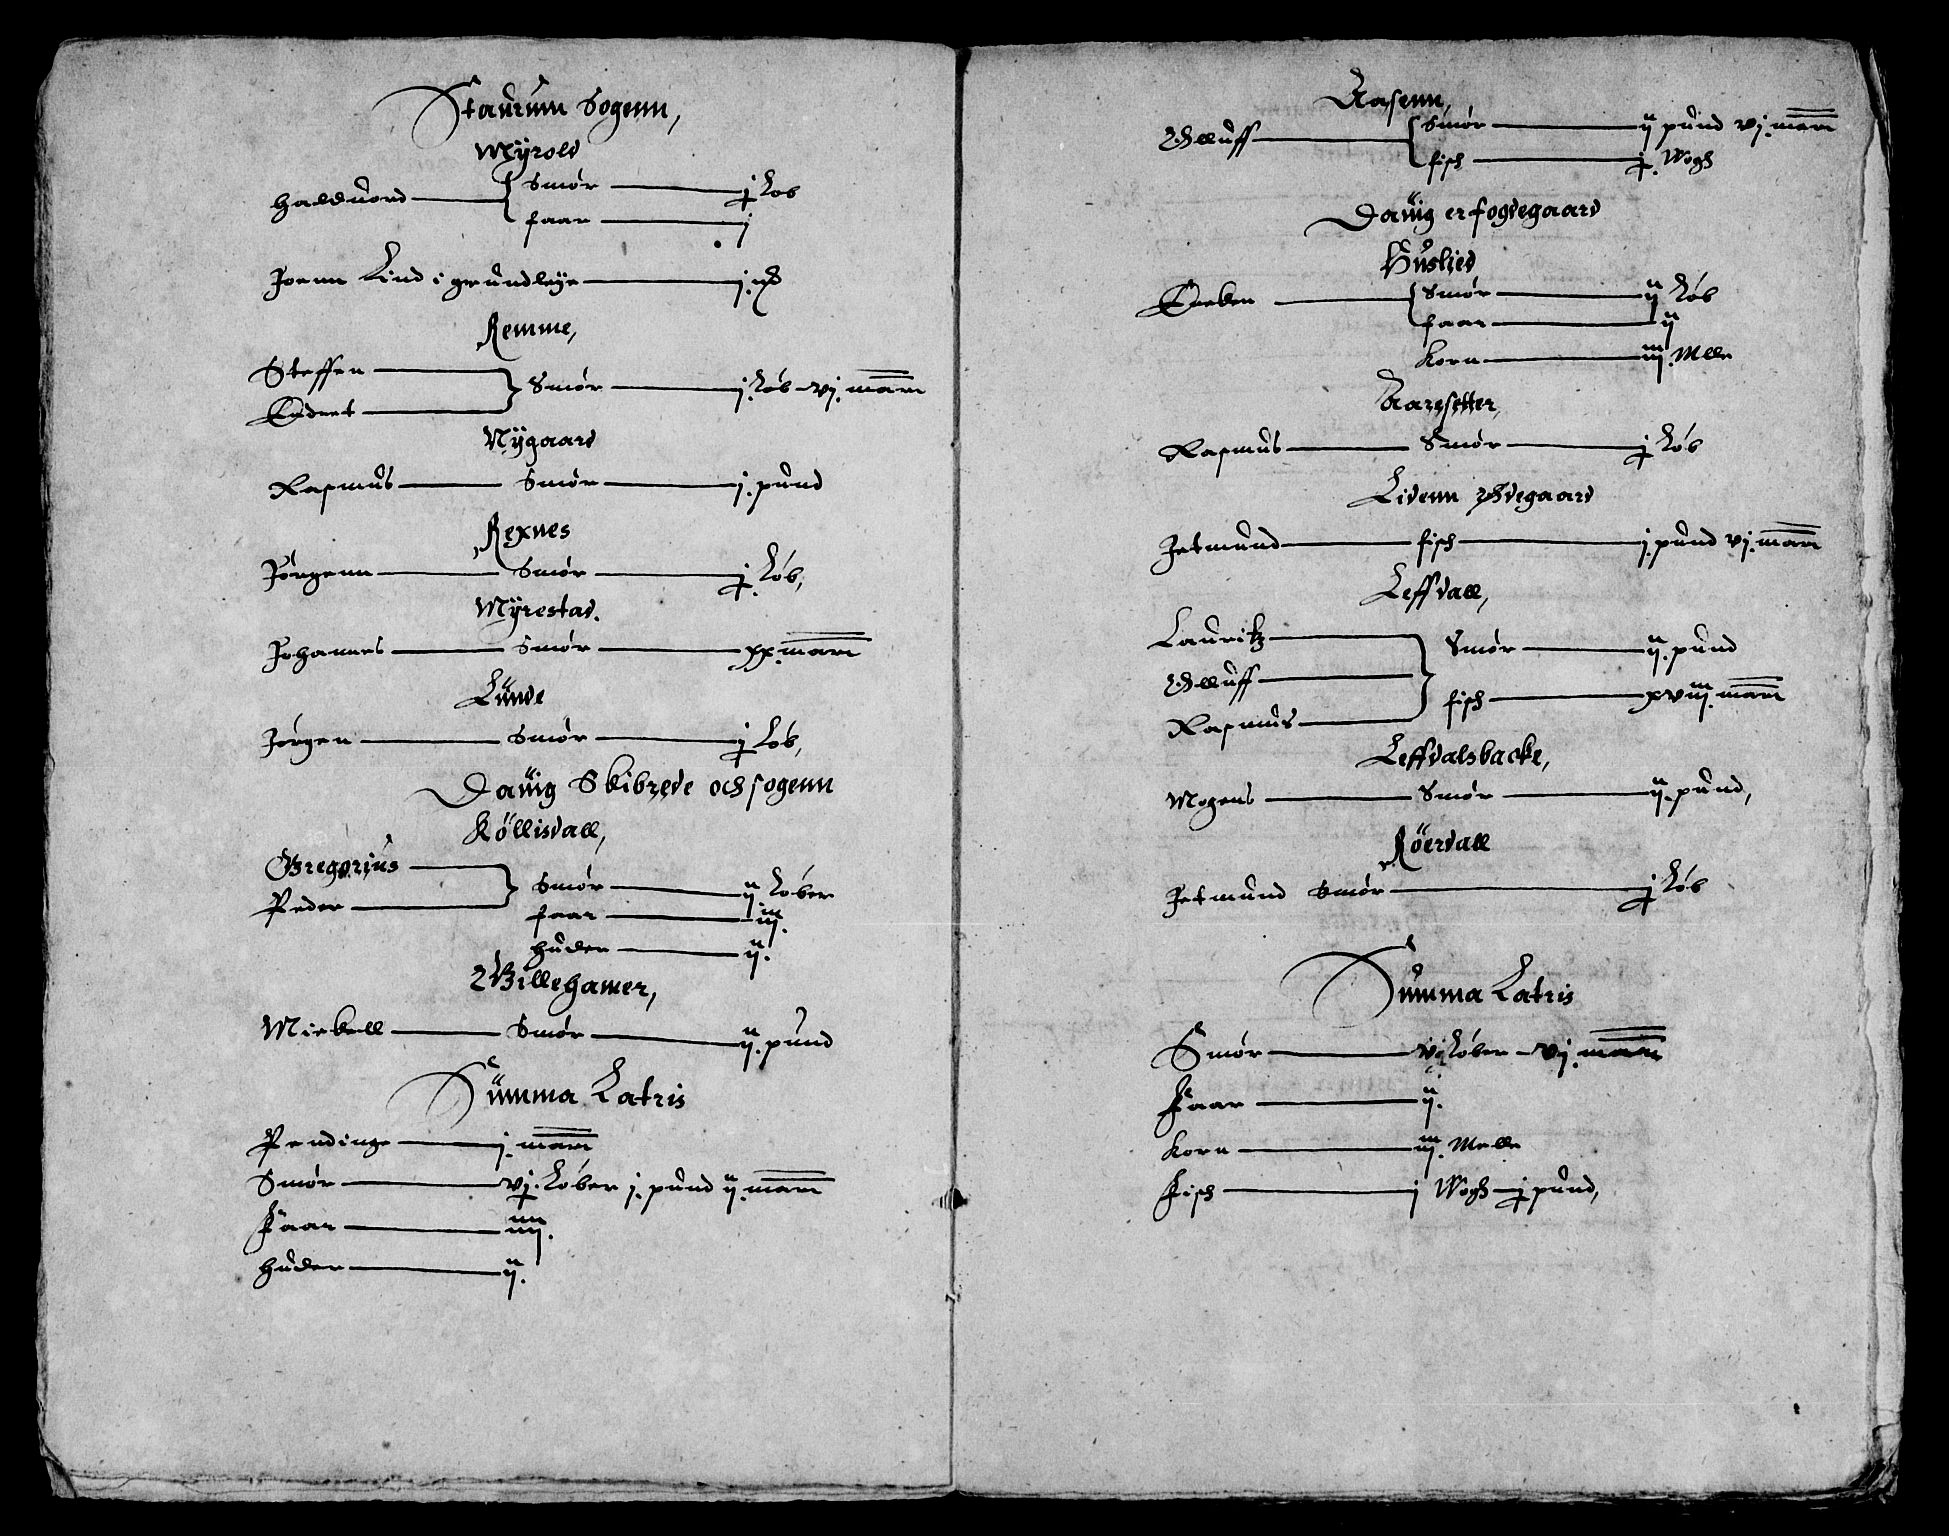 Staurum Sogenn,
Myrold
Halduord Smør j Løb
faar j
Joenn Lind i grundleye j
Remme,
Steffen
Endret Smør j. Løb vj. marc
Nygaard
Rasmus Smør j. pund
Rexnes
Jørgenn Smør j. Løb,
Myrestad.
Johannes Smør xx. marc
Lunde
Jørgen Smør j Løb,
Dauig Skibrede och sogenn
Köllisdall,
Gregorius
Peder Smør ij Løber
faar iij.
huder ij.
Willehamer,
Mickell Smør ij. pund
Summa Latris
Pendinge j. marc
Smør vj. Løber j. pund ij. marc
Faar iiij.
huder ij.
Aasenn,
Olluff Smør ij pund vj. marc
fisch j. Wogh
Dauig er fogdegaard
Huslied
Smør ij Løb
faar ij
Korn iij. Melle
Aarssetter,
Rasmus Smør j Løb
Lidenn Ødegaard
Jetmund fisch j. pund vj. marc
Leffdall,
Lauritz
Olluff
Rasmus
Smør ij. pund
fisch xviij. marc
Leffdalsbacke,
Mogens Smør ij. pund,
Röerdall
Jetmund Smør j Løb
Summa Latris
Smør vj Løber vj. marc
Faar ij.
Korn iij. Melle
Fisch j Wogh j pund,